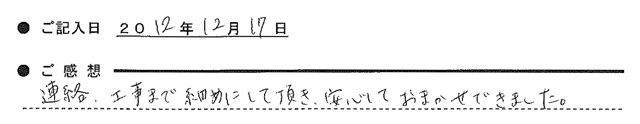 ● ご記入日 2012年12月17日
● ご感想
連絡、工事まで細めにして頂き、安心しておまかせできました。